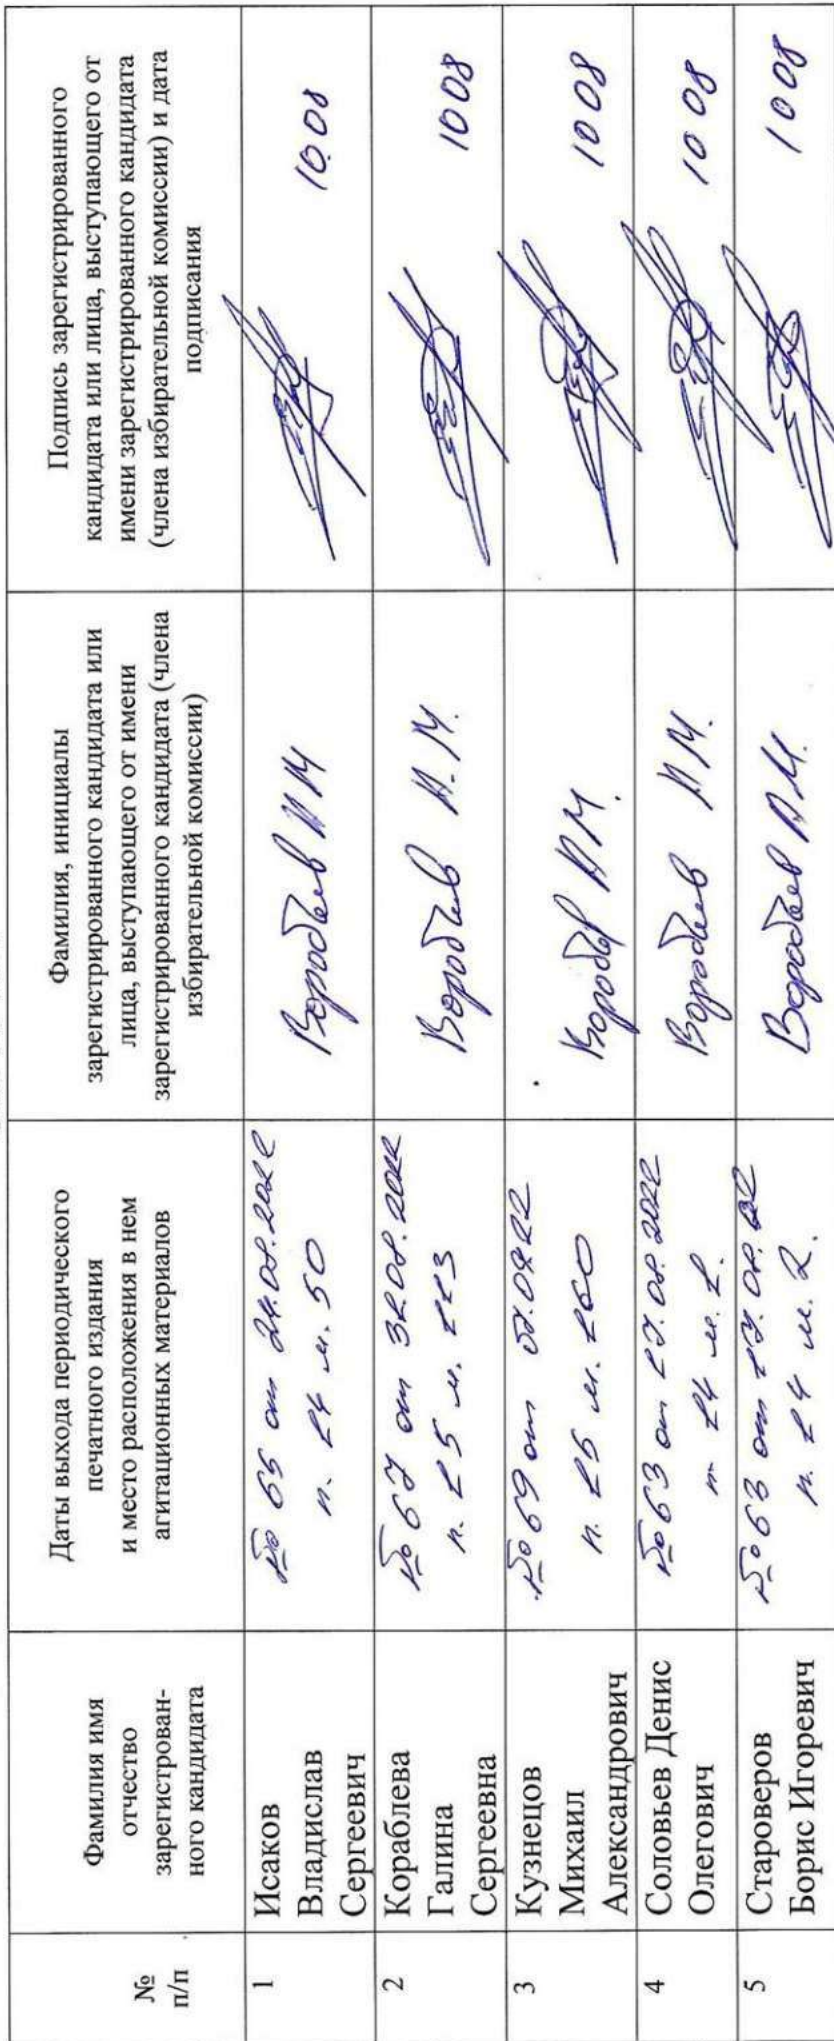 №
п/п
Фамилия имя
отчество
зарегистрирован-
ного кандидата
Даты выхода периодического
печатного издания
и место расположения в нем
агитационных материалов
Фамилия, инициалы
зарегистрированного кандидата или
лица, выступающего от имени
зарегистрированного кандидата (члена
избирательной комиссии)
Подпись зарегистрированного
кандидата или лица, выступающего от
имени зарегистрированного кандидата
(члена избирательной комиссии) и дата
подписания
1
Исаков
Владислав
Сергеевич
№ 65 от 24.08.2022
п. 14 м. 50
Воробьев А М
10.08
2
Кораблева
Галина
Сергеевна
№ 67 от 31.08.2022
п. 15 м. 113
Воробьев А.М.
10 08
3
Кузнецов
Михаил
Александрович
№ 69 от 07.0922
п. 15 м. 160
Воробьев А М.
10 08
4
Соловьев Денис
Олегович
№ 63 от 17.08.2022
п. 14 м. 1.
Воробьев А М.
10 08
5
Староверов
Борис Игоревич
№ 63 от 17.08.22
п. 14 м. 2.
Воробьев А М.
10 08